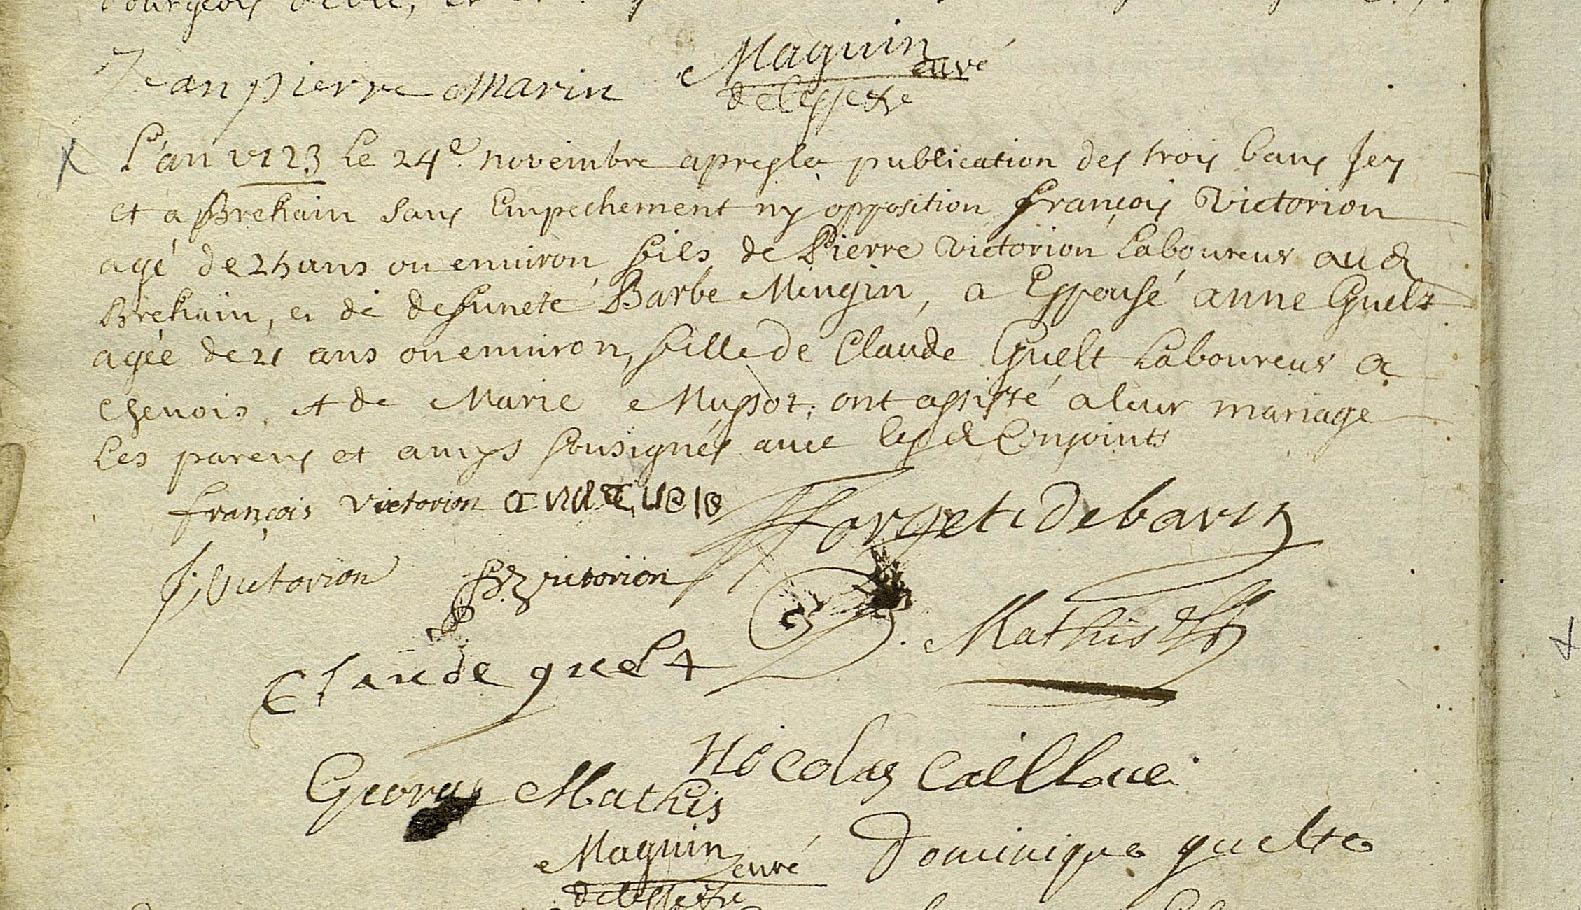 Jean pierre Marin Maguin curé
L'an 1723 Le 24e novembre apres la publication des trois bans Icy
et a Brehain sans Empechement ny opposition françois Victorion
agé de 25 ans ou environ, fils de Pierre Victorion Laboureur aud
Brehain, et de defunete Barbe Mingin, a Epousé anne Guelt
agée de 21 ans ou environ, fille de Claude Guelt Laboureur a
Chenois, et de Marie Mussot, ont assisté a leur mariage
Les parens et amys sousignés avec lesd Conjoints
françois Victorion
Forget de barst
J Victorion fr Victorion
Mathis
Claude guelt
Nicolas Cailloue
George Mathis
Maguin curé Dominique guelte